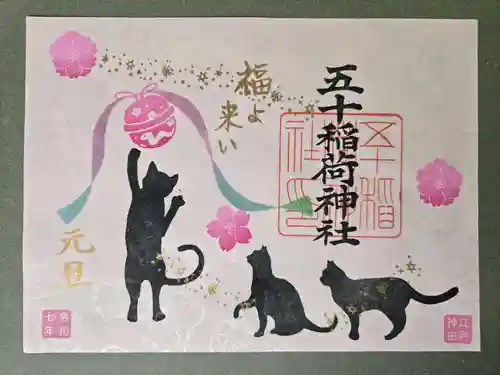 五十稲荷神社
福よ
来い
元旦
五十稲
荷社印
江戸
神田
令和
七年